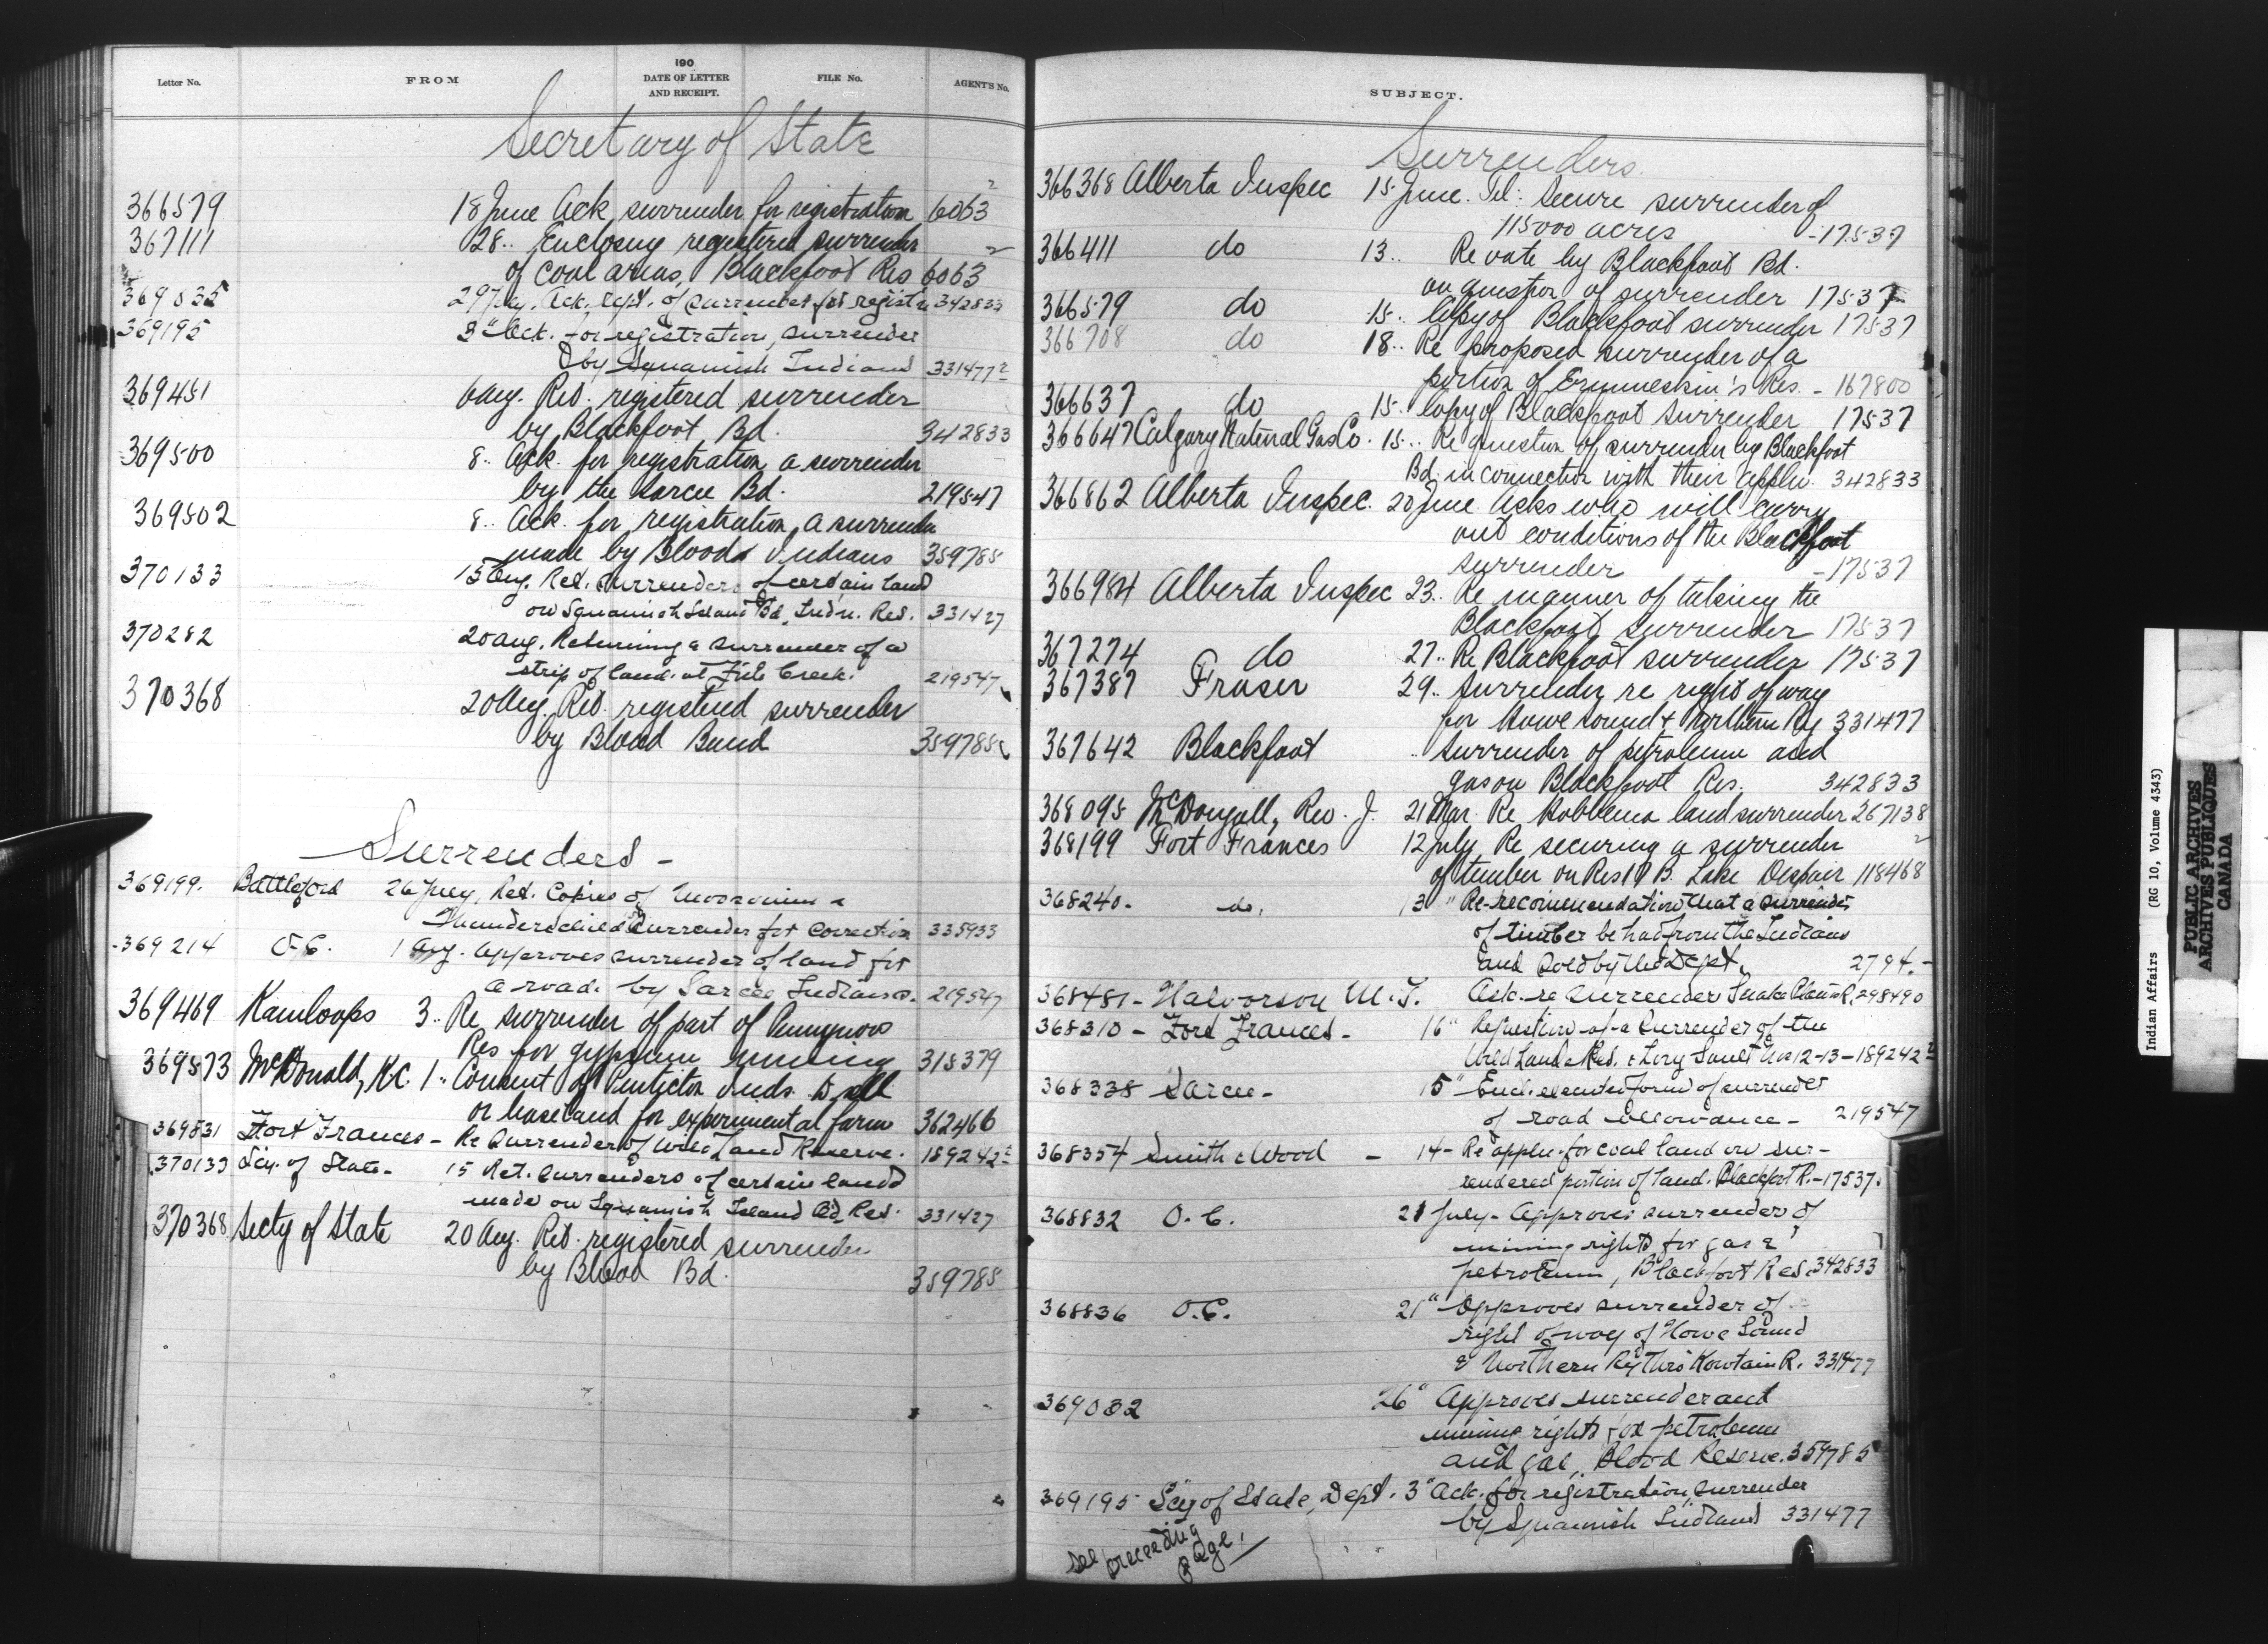 Letter No. FROM 190 DATE OF LETTER AND RECEIPT. FILE No. AGENT'S No.
Secretary of State
366579 18 June Ack surrender for registration 6063²
367111 28 .. Enclosing registered surrender
of coal areas, Blackfoot Res 6063²
369035 29 July. Ack. rept. of surrender for registn 342833
369195 3 " Ack. for registration, surrender
by Squamish Indians 331477²
369451 6 Aug. Ret. registered surrender
by Blackfoot Bd. 342833
369500 8 .. Ack. for registration a surrender
by the Sarcee Bd. 219547
369502 8 .. Ack. for registration, a surrender
made by Bloods Indians 359785
370133 15 Aug. Ret. surrenders of certain land
on Squamish Island Bd. Indn. Res. 331427
370282 20 Aug. Returning a surrender of a
strip of land at Fish Creek. 219547
370368 20 Aug. Ret. registered surrender
by Blood Band 359785
Surrenders -
369199. Battleford 26 July, Ret. Copies of Moosomin &
Thunderchild Surrender for correction 335933
369214 O.C. 1 Aug. Approves surrender of land for
a road by Sarcee Indians. 219547
369469 Kamloops 3 .. Re surrender of part of
Res for gypsum mining 315379
369573 McDonald, K.C. 1 .. Consent of Penticton Inds to sell
or lease land for experimental farm 362466
369831 Fort Frances - Re Surrender of Wild Land Reserve. 189242²
370133 Scy. of State - 15 Ret. surrenders of certain land
made on Squamish Island Bd. Res. 331427
370368 Secty of State 20 Aug. Ret. registered surrender
by Blood Bd. 359785
SUBJECT.
Surrenders.
366368 Alberta Inspec 15 June. Tel: Secure surrender of
115000 acres - 17537
366411 do 13 .. Re vote by Blackfoot Bd.
on question of surrender 17537
366579 do 15 .. Copy of Blackfoot surrender 17537
366708 do 18 .. Re proposed surrender of a
portion of Ermineskin's Res. - 167800
366637 do 15 .. Copy of Blackfoot surrender 17537
366647 Calgary Natural Gas Co. 15 .. Re question of surrender by Blackfoot
Bd. in connection with their appln. 342833
366862 Alberta Inspec. 20 June Asks who will carry
out conditions of the Blackfoot
surrender - 17537
366984 Alberta Inspec 23 .. Re manner of taking the
Blackfoot surrender 17537
367274 do 27 .. Re Blackfoot surrender 17537
367387 Fraser 29 .. Surrender re right of way
for Howe Sound & Northern Ry 331477
367642 Blackfoot .. Surrender of petroleum and
gas on Blackfoot Res. 342833
368095 McDougall, Rev. J. 21 Mar. Re Hobbema land surrender 267138
368199 Fort Frances 12 July Re securing a surrender
of timber on Res 17 B. Lake Despair 118468²
368240. do. 13 " Re-recommendation that a surrender
of timber be had from the Indians
and sold by the Dept. 2794. -
368481 - Halvorson M. T. Ack. re surrender Snake Plain R. 298490
368310 - Fort Frances - 16 " Re question of a surrender of the
Wild Land Res. & Long Sault Nos 12-13 - 189242²
368338 Sarcee - 15 " Encl. executed form of surrender
of road allowance - 219547
368354 Smith & Wood - 14 - Re appln. for coal land on sur-
rendered portion of land. Blackfoot R. - 17537.
368832 O.C. 21 July - Approves surrender of
mining rights for gas &
petroleum, Blackfoot Res. 342833
368836 O.C. 21 " Approves surrender of
right of way of Howe Sound
& Northern Ry Thro' Kowtain R. 331477
369032 26 " Approves surrender and
mining rights for petroleum
and gas, Blood Reserve. 359785
369195 Scy of State, Dept. 3 " Ack. for registration, surrender
by Squamish Indians 331477
See preceeding
page.
Indian Affairs (RG 10, Volume 4343)
PUBLIC ARCHIVES
ARCHIVES PUBLIQUES
CANADA